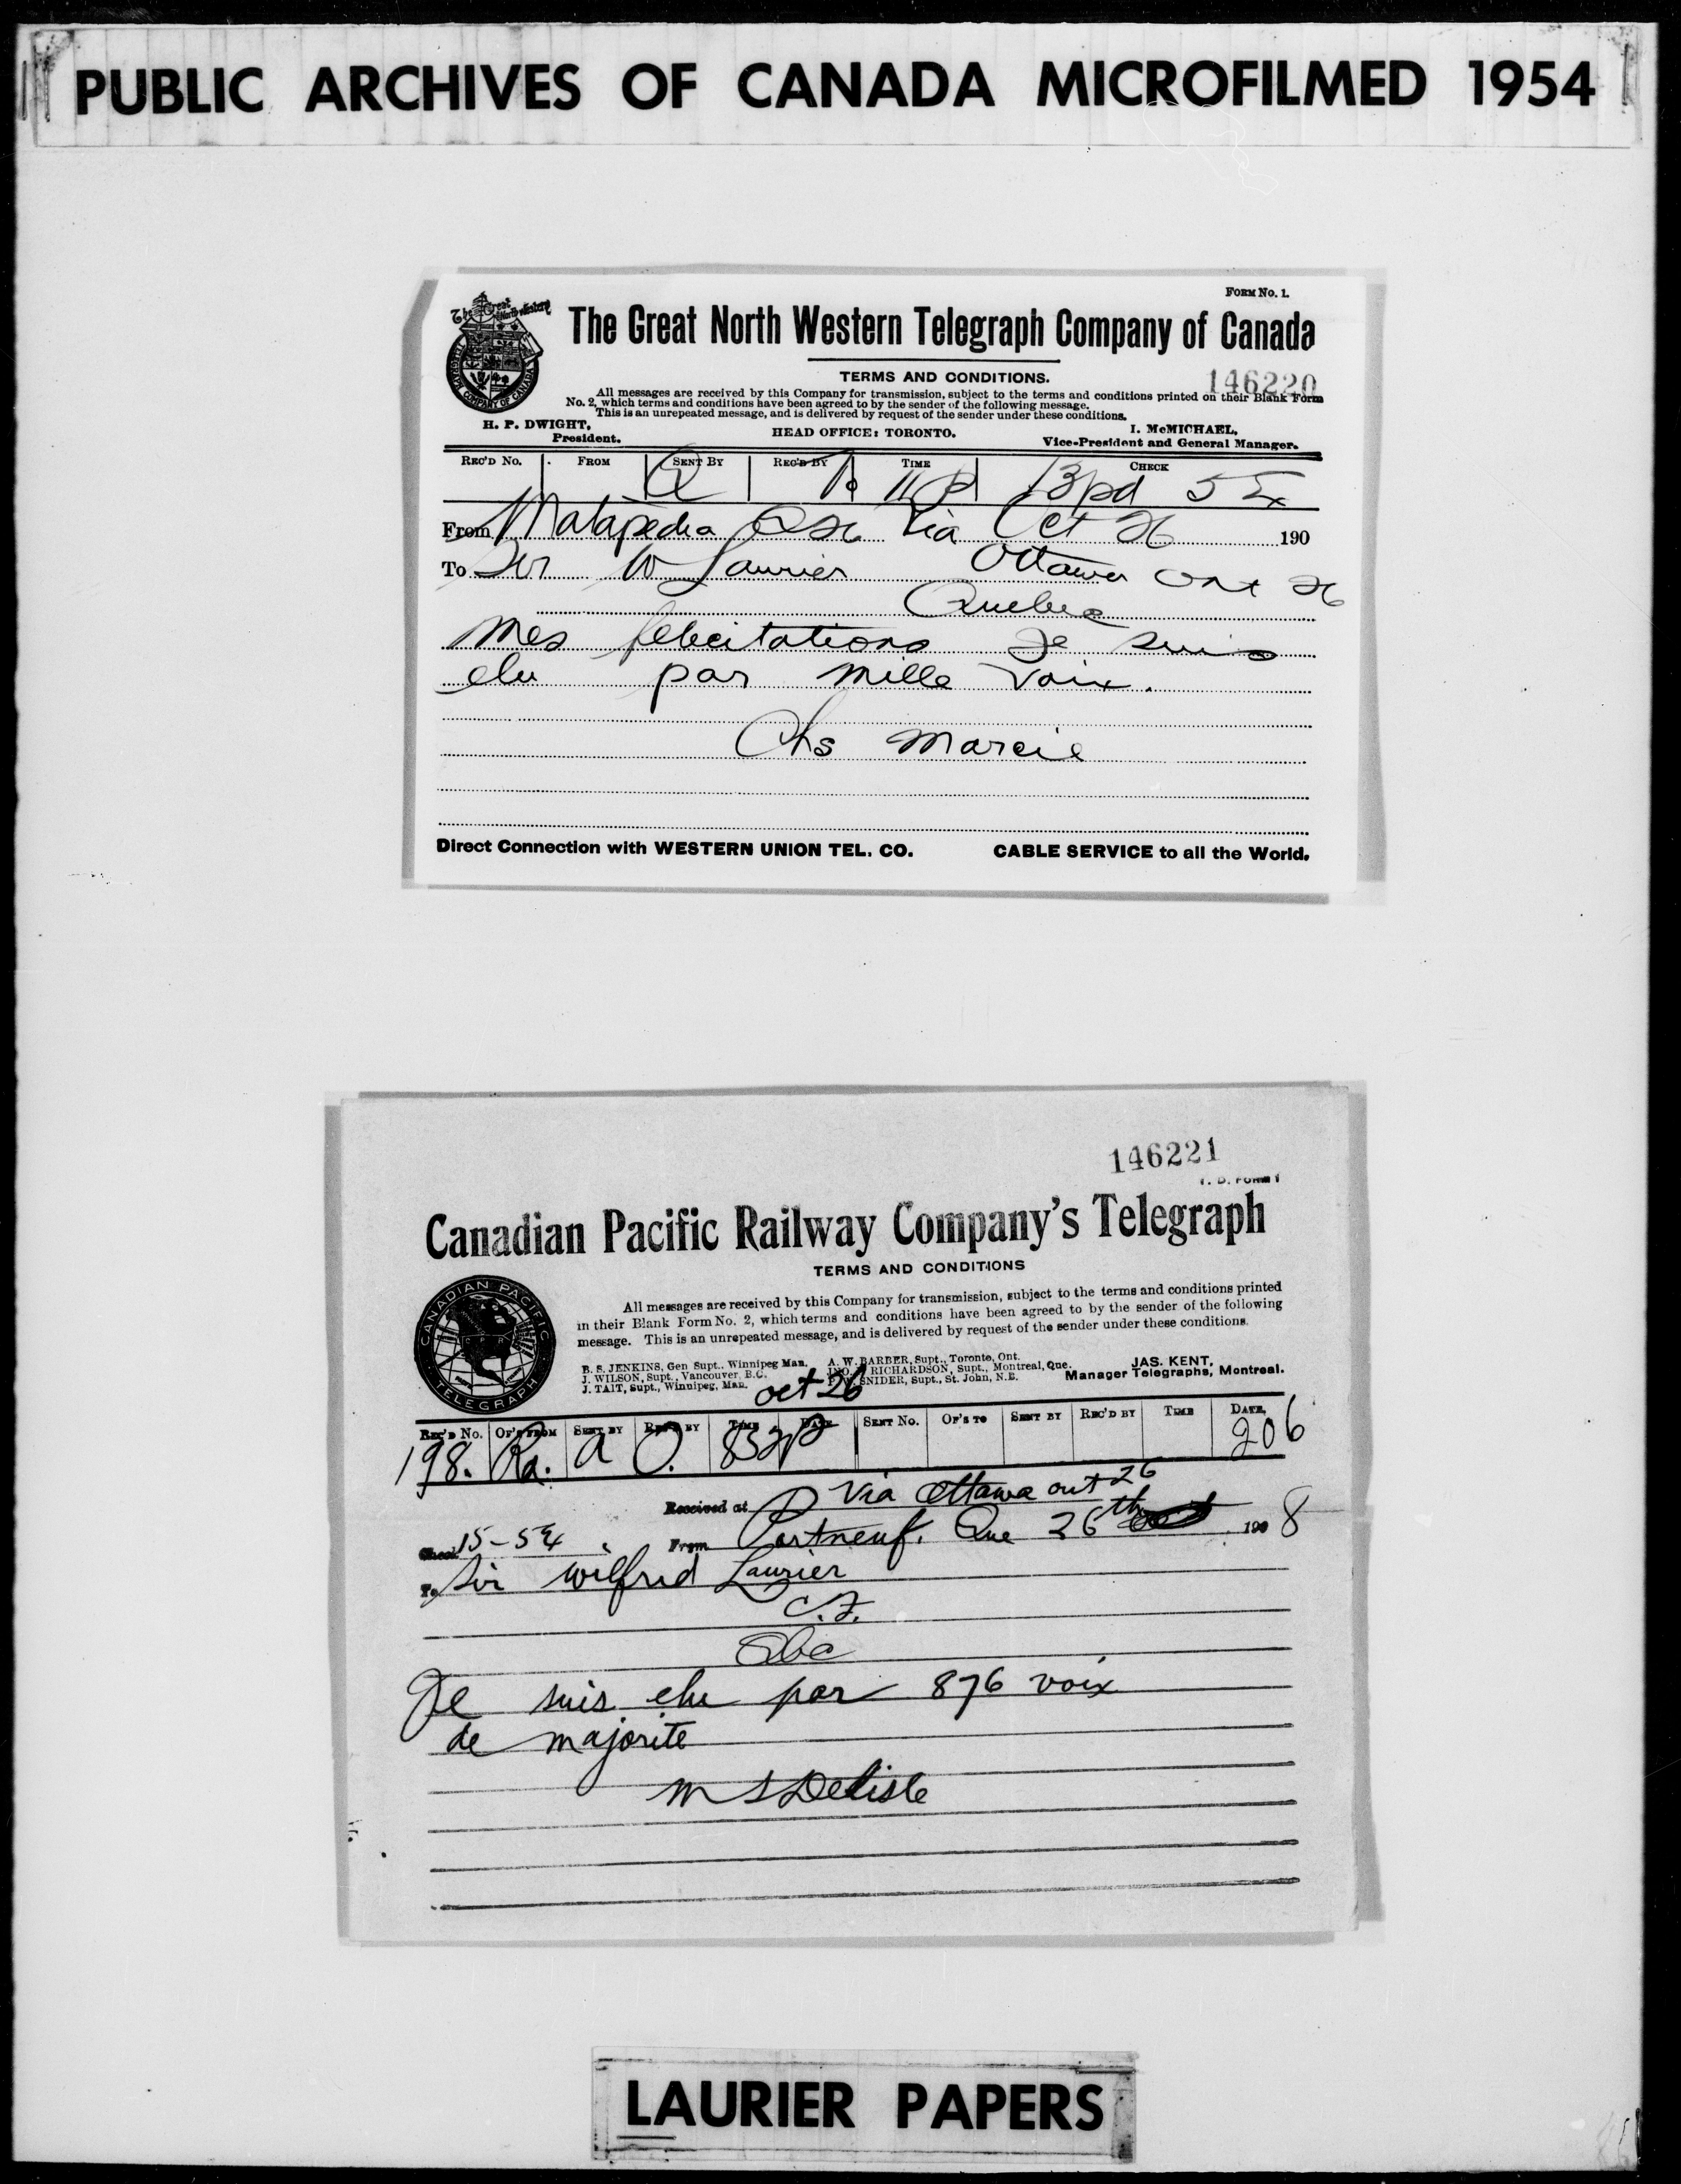 PUBLIC ARCHIVES OF CANADA MICROFILMED 1954
FORM No. 1.
The Great North Western Telegraph Company of Canada
TERMS AND CONDITIONS.
146220
All messages are received by this Company for transmission, subject to the terms and conditions printed on their Blank Form
No. 2, which terms and conditions have been agreed to by the sender of the following message.
This is an unrepeated message, and is delivered by request of the sender under these conditions.
H. P. DWIGHT, President.
HEAD OFFICE: TORONTO.
I. McMICHAEL, Vice-President and General Manager.
REC'D No. FROM SENT BY REC'D BY TIME CHECK
From Matapedia Que 26 Via Oct 26 190
To Sir W Laurier Ottawa Ont 26
Quebec
Mes felicitations Je suis
elu par mille voix.
Chs Marcil
Direct Connection with WESTERN UNION TEL. CO. CABLE SERVICE to all the World.
146221
T. D. FORM 1
Canadian Pacific Railway Company's Telegraph
TERMS AND CONDITIONS
CANADIAN PACIFIC TELEGRAPH
All messages are received by this Company for transmission, subject to the terms and conditions printed
in their Blank Form No. 2, which terms and conditions have been agreed to by the sender of the following
message. This is an unrepeated message, and is delivered by request of the sender under these conditions.
B. S. JENKINS, Gen Supt.. Winnipeg Man. A. W. BARBER, Supt., Toronto, Ont.
J. WILSON, Supt., Vancouver, B.C. RICHARDSON, Supt., Montreal, Que.
J. TAIT, Supt., Winnipeg, Man. SNIDER, Supt., St. John, N.B.
JAS. KENT, Manager Telegraphs, Montreal.
Oct 26
REC'D No. OF'S FROM SENT BY REC'D BY TIME DATE SENT No. OF'S TO SENT BY REC'D BY TIME DATE,
198. Ra. a O. 852P 206
Received at Via Ottawa ont 26
Check 15-54 From Portneuf. Que 26th 1908
To Sir Wilfrid Laurier
C.F.
Qbc
Je suis elu par 876 voix
de majorite
M S Delisle
LAURIER PAPERS